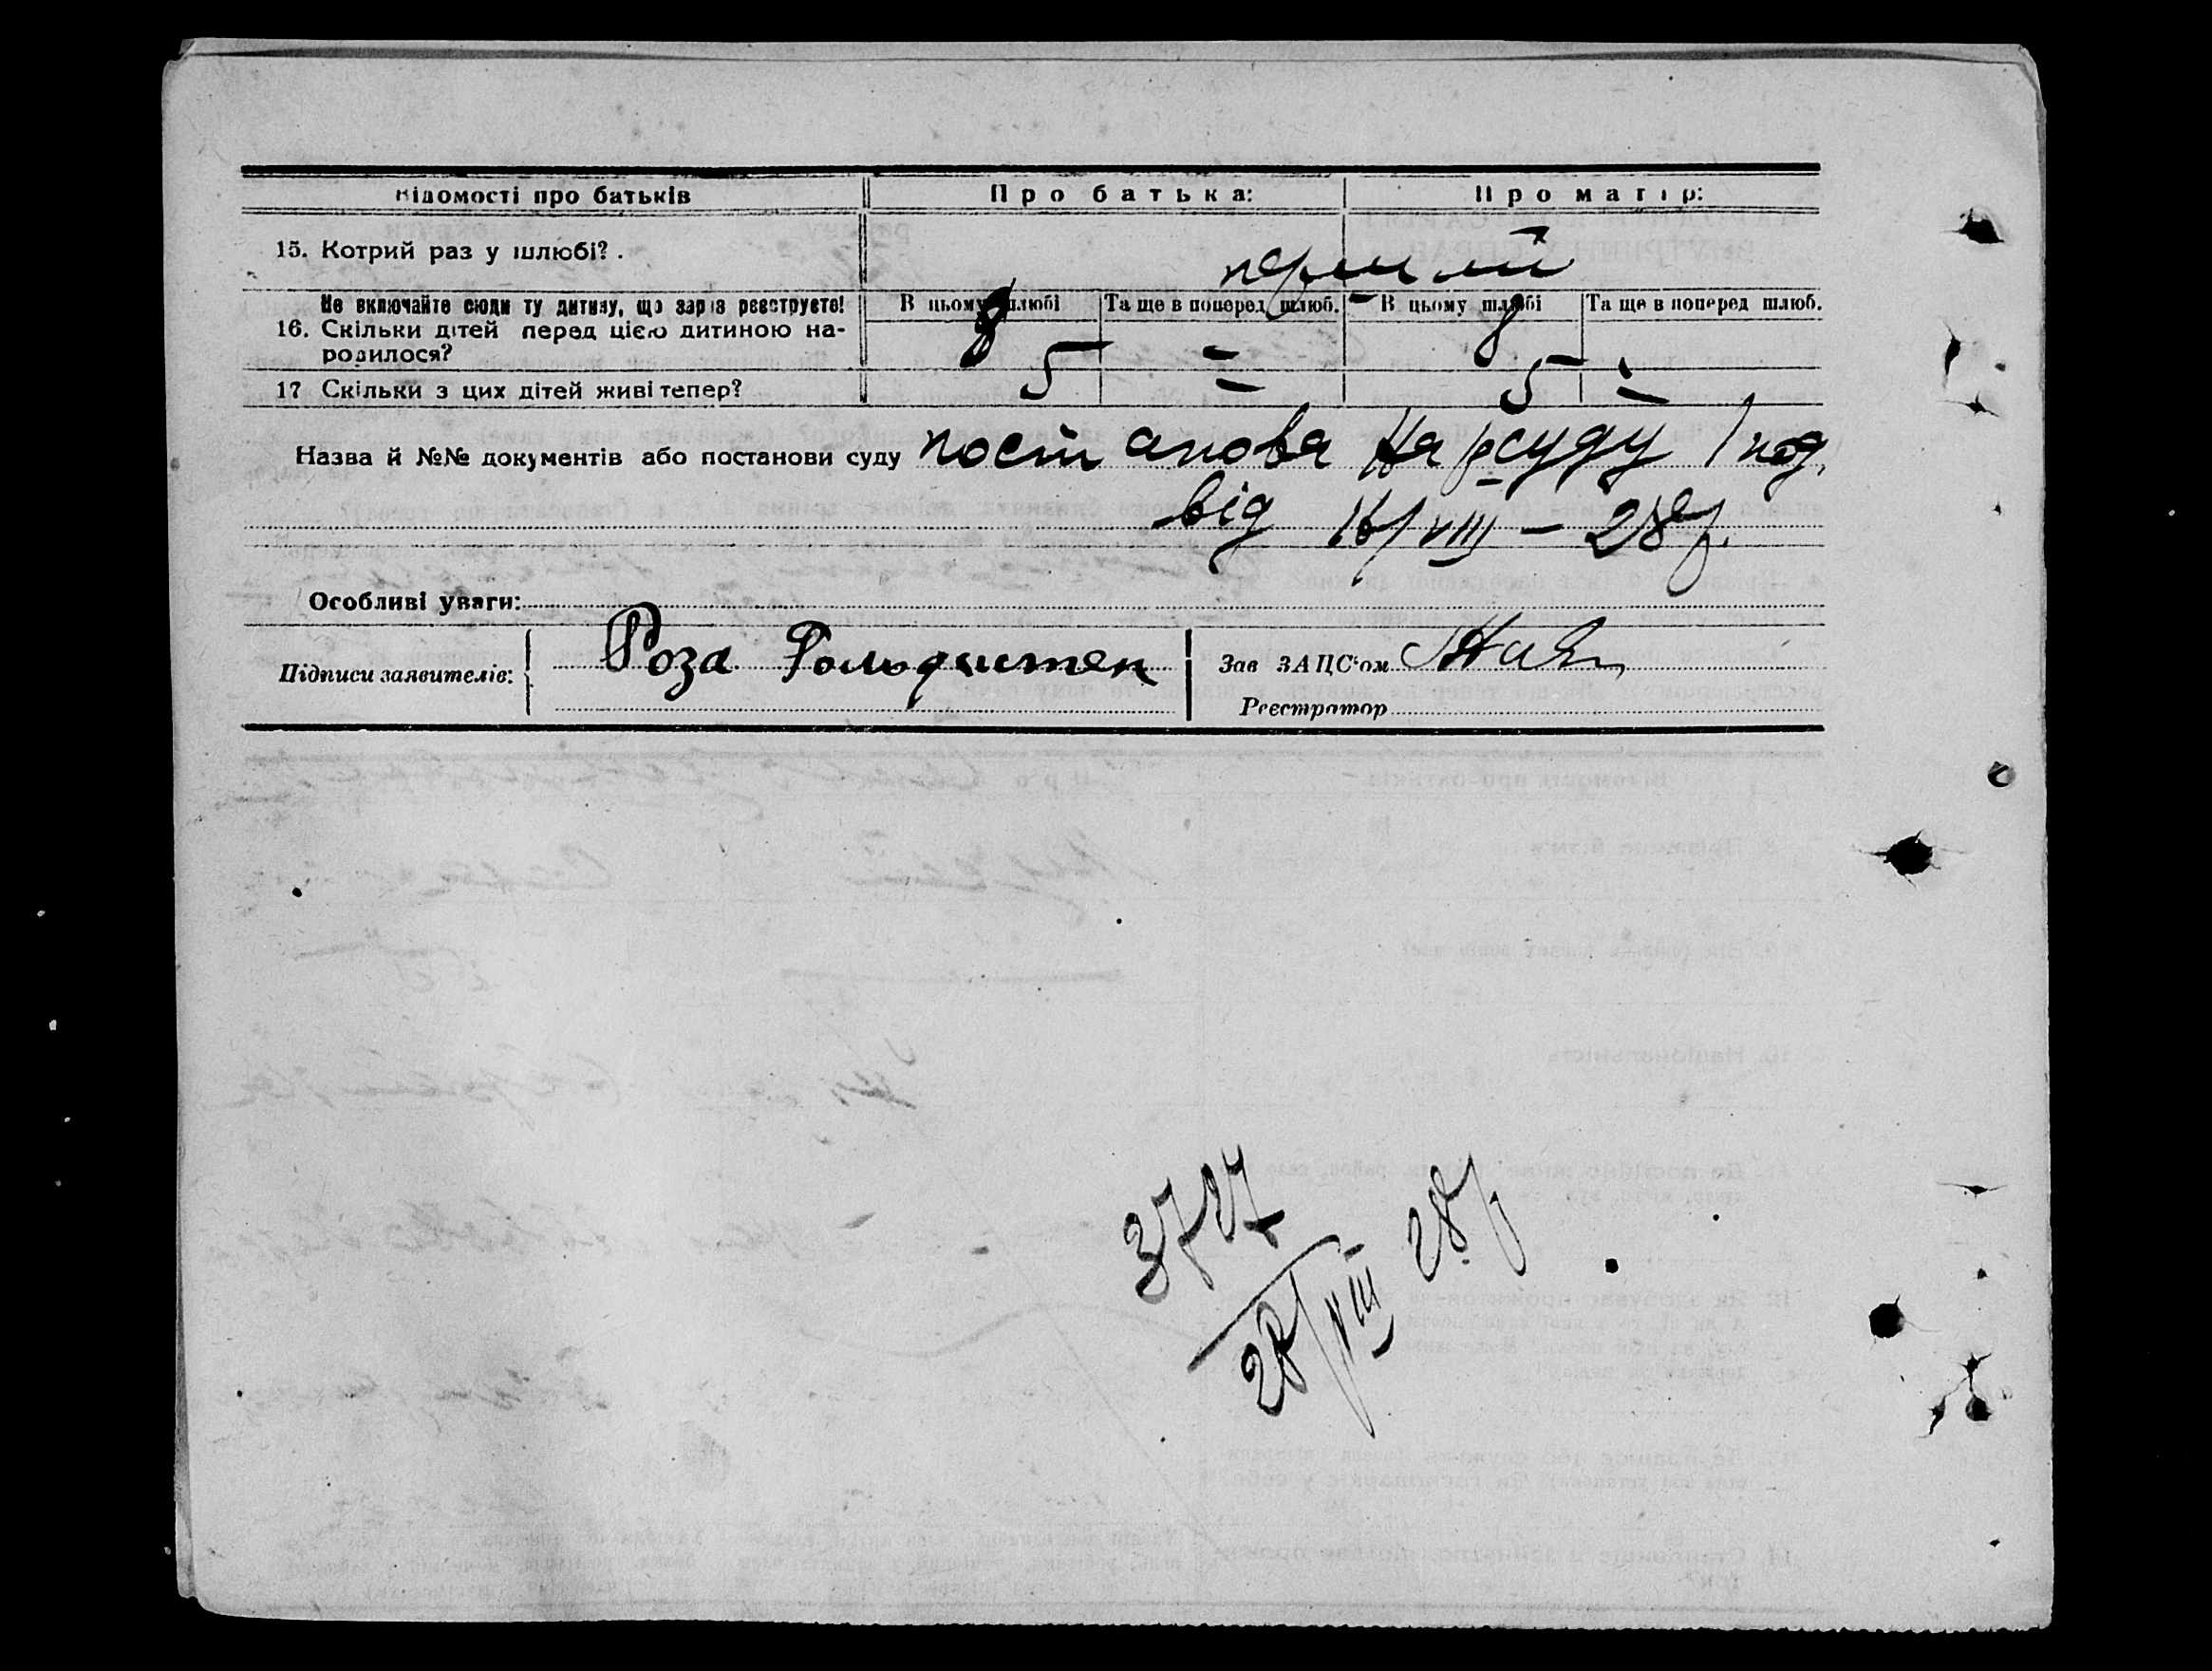 Відомості про батьків Про батька: Про матір:
15. Котрий раз у шлюбі? . перший
Не включайте сюди ту дитину, що зараз реєструєте! В цьому шлюбі Та ще в поперед. шлюб. В цьому шлюбі Та ще в поперед шлюб.
16. Скільки дітей перед цією дитиною на- 8 – 8 –
родилося?
17 Скільки з цих дітей живі тепер? 5 – 5 –
Назва й №№ документів або постанови суду постанова Нарсуду 1 под.
від 16/VIII – 28 р.
Особливі уваги:
Підписи заявителів: Роза Гольдштен Зав ЗАЦС'ом
Реєстратор
28/VIII 28 р.